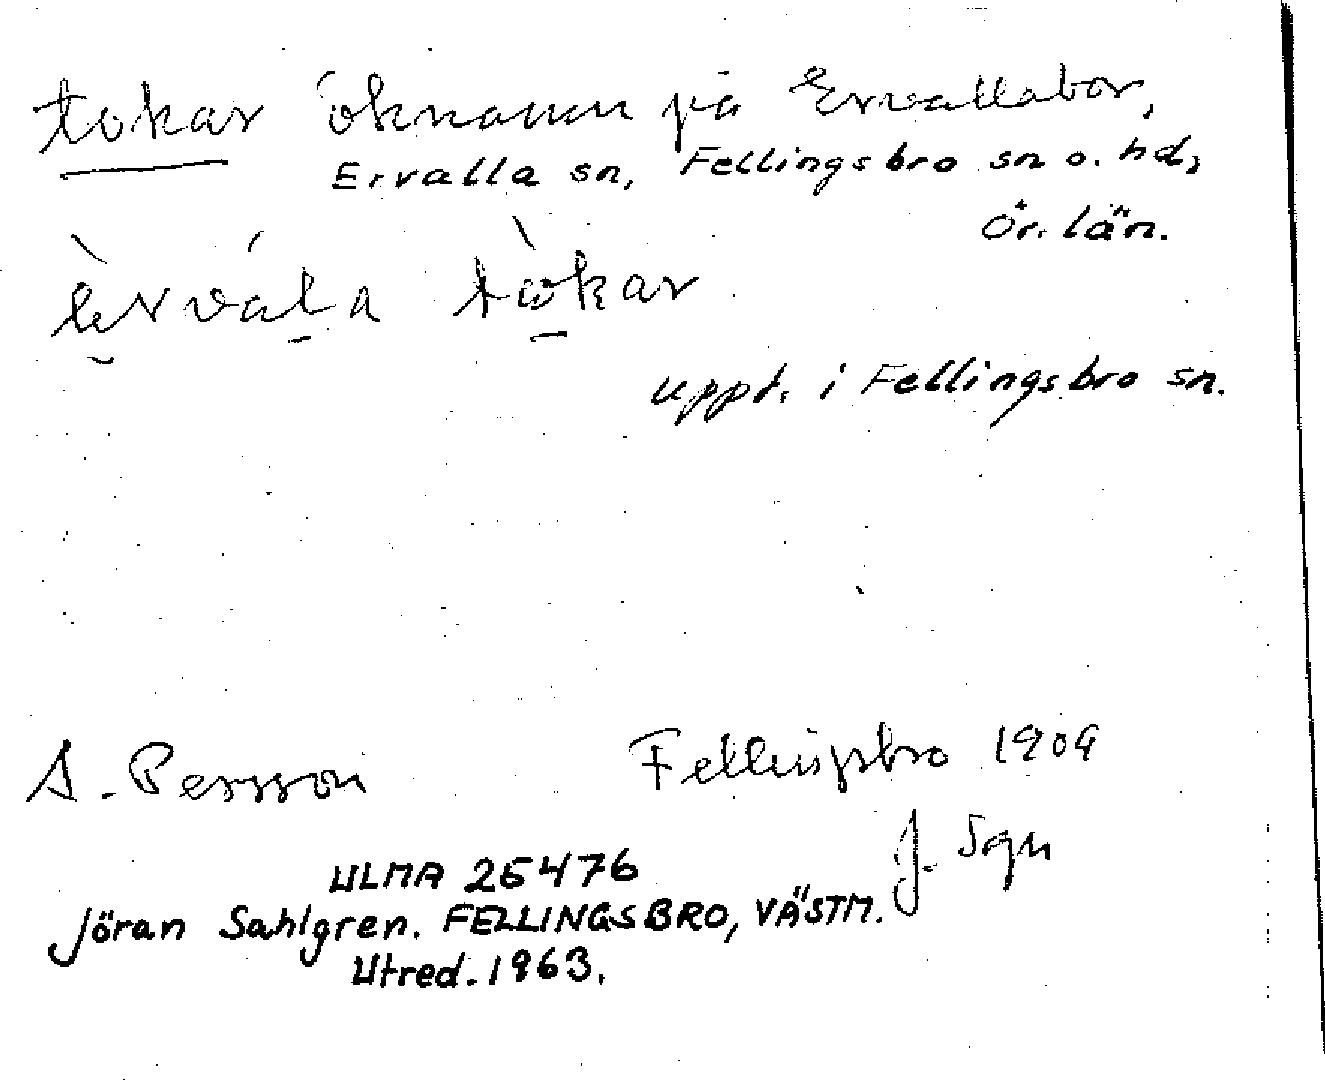 tokar öknamn på Ervallabor,
Ervalla sn, Fellingsbro sn o. hd,
Ör. län.
èrvála tòkar
uppt. i Fellingsbro sn.
A. Persson Fellingsbro 1909
J. Sgn
ULMA 26476
Jöran Sahlgren. FELLINGSBRO, VÄSTM.
Utred. 1963.